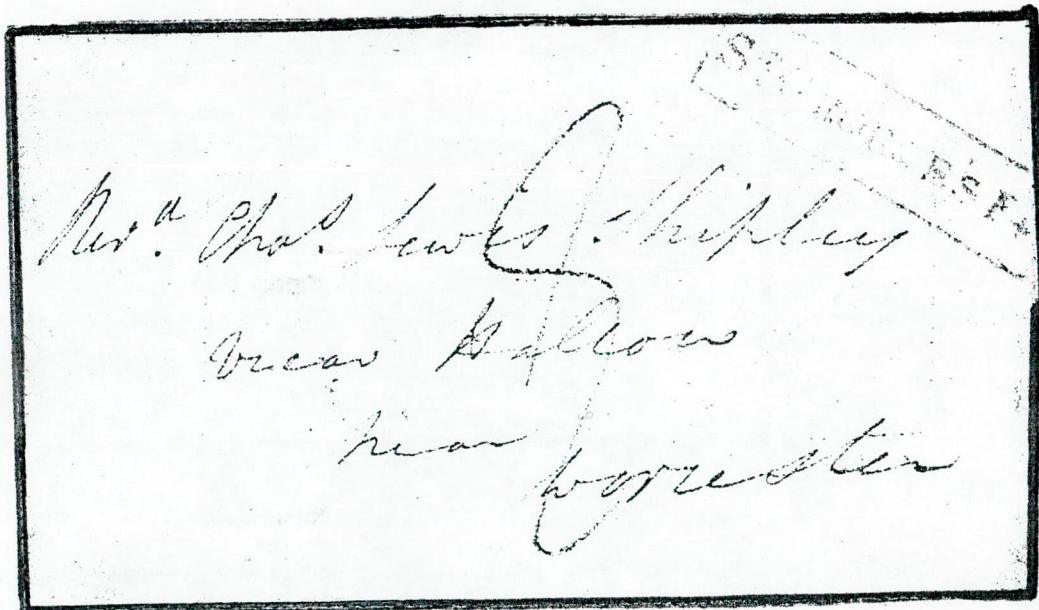 Revd. Chas. Lewis Shipley
Vicar Hallow
near
Worcester